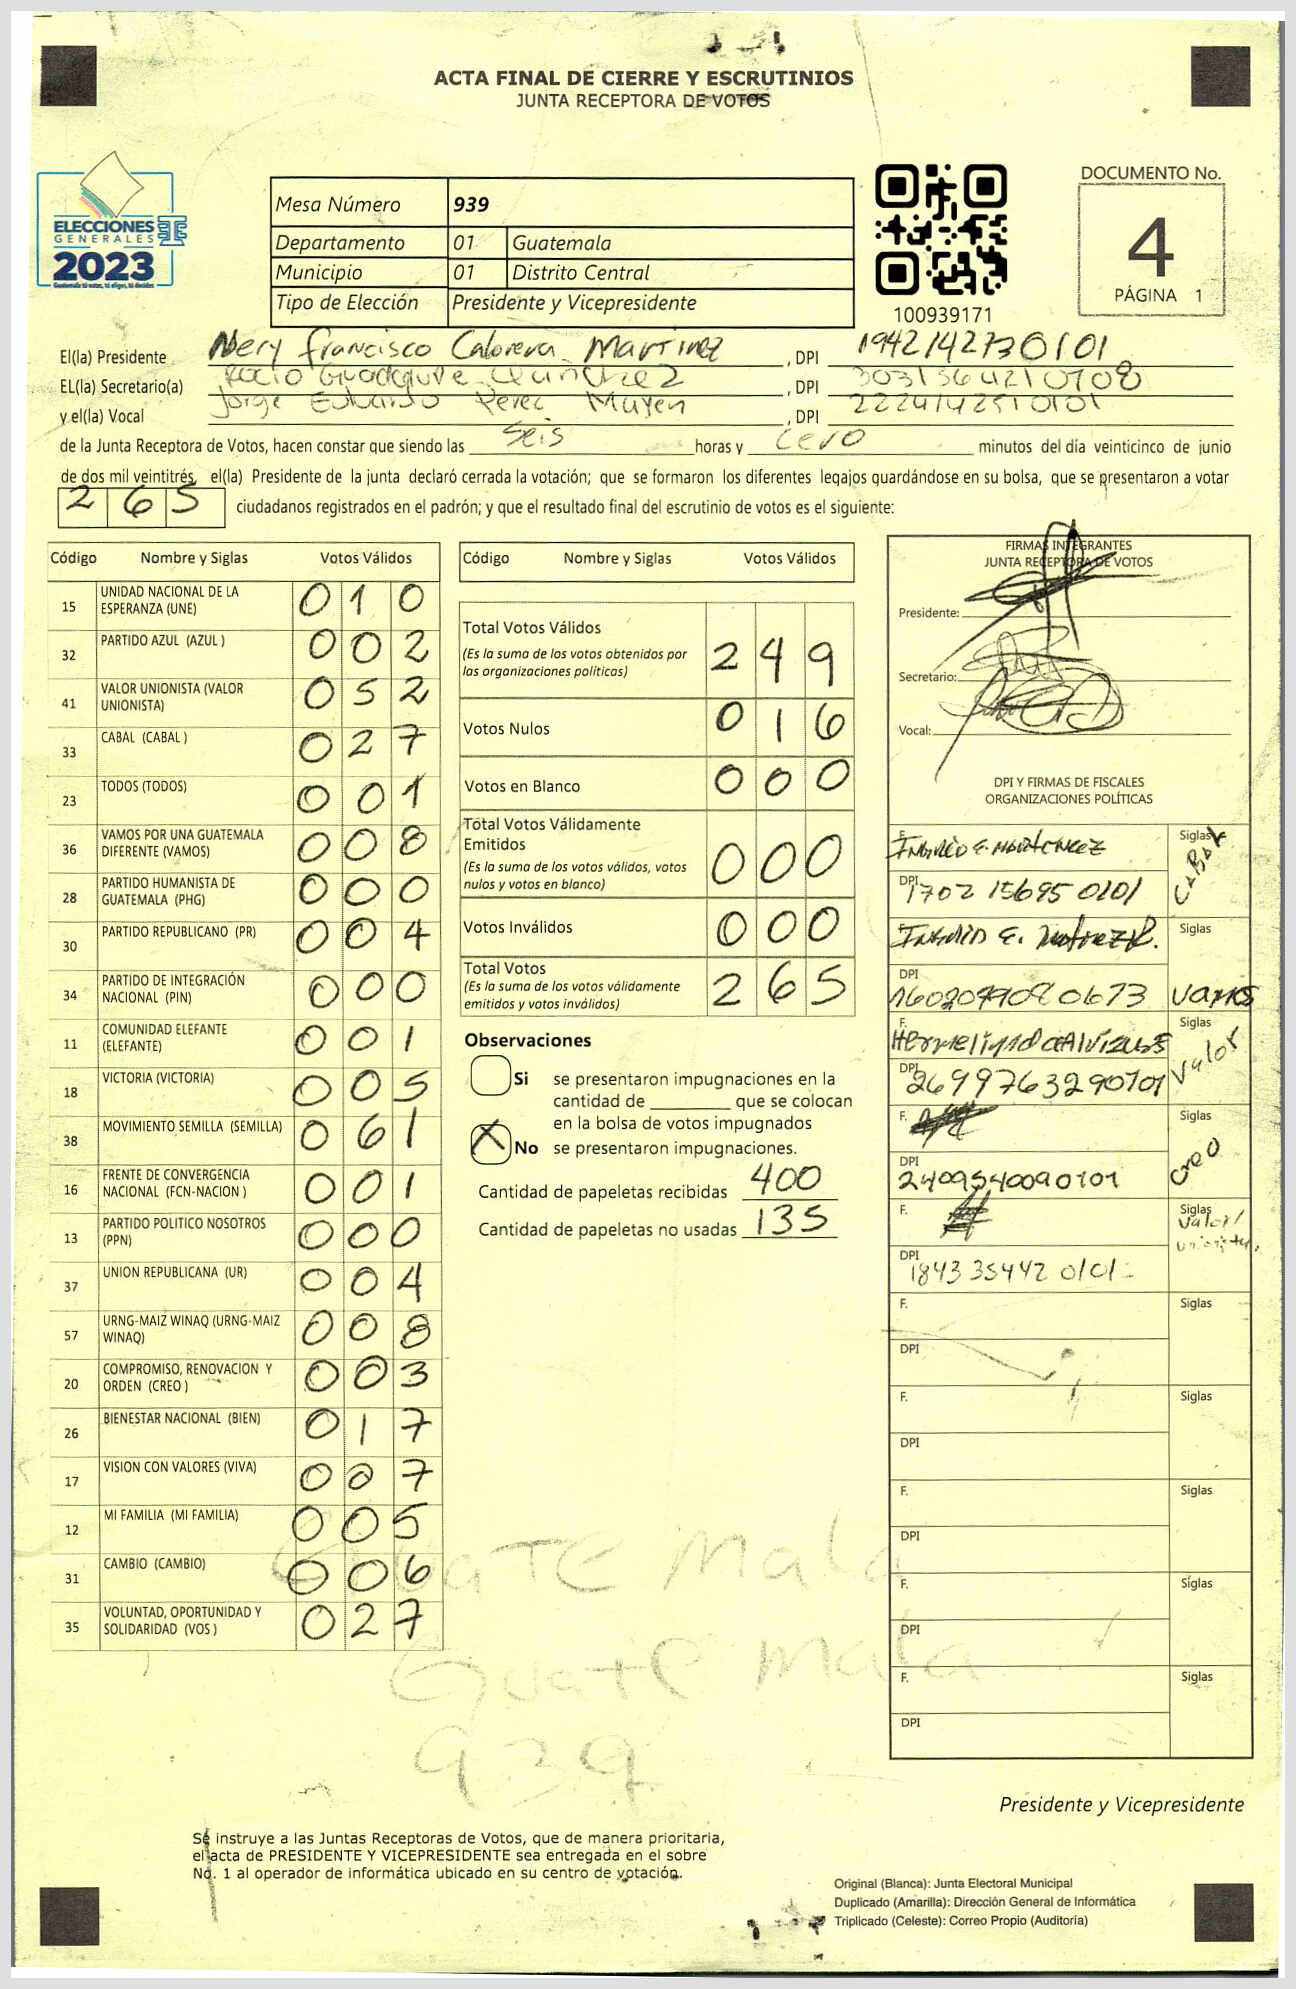 ACTA FINAL DE CIERRE Y ESCRUTINIOS
JUNTA RECEPTORA DE VOTOS
ELECCIONES
GENERALES
2023
Guatemala tú votas, tú eliges, tú decides
Mesa Número 939
Departamento 01 Guatemala
Municipio 01 Distrito Central
Tipo de Elección Presidente y Vicepresidente
100939171
DOCUMENTO No.
4
PÁGINA 1
El(la) Presidente Nery Francisco Cabrera Martinez , DPI 1942142730101
EL(la) Secretario(a) Rocio Guadalupe , DPI
y el(la) Vocal Jorge Eduardo Perez Mayen , DPI 2224142510101
de la Junta Receptora de Votos, hacen constar que siendo las seis horas y cero minutos del día veinticinco de junio
de dos mil veintitrés, el(la) Presidente de la junta declaró cerrada la votación; que se formaron los diferentes legajos guardándose en su bolsa, que se presentaron a votar
265 ciudadanos registrados en el padrón; y que el resultado final del escrutinio de votos es el siguiente:
Código Nombre y Siglas Votos Válidos
15 UNIDAD NACIONAL DE LA ESPERANZA (UNE) 010
32 PARTIDO AZUL (AZUL ) 002
41 VALOR UNIONISTA (VALOR UNIONISTA) 052
33 CABAL (CABAL ) 027
23 TODOS (TODOS) 001
36 VAMOS POR UNA GUATEMALA DIFERENTE (VAMOS) 008
28 PARTIDO HUMANISTA DE GUATEMALA (PHG) 000
30 PARTIDO REPUBLICANO (PR) 004
34 PARTIDO DE INTEGRACIÓN NACIONAL (PIN) 000
11 COMUNIDAD ELEFANTE (ELEFANTE) 001
18 VICTORIA (VICTORIA) 005
38 MOVIMIENTO SEMILLA (SEMILLA) 061
16 FRENTE DE CONVERGENCIA NACIONAL (FCN-NACION ) 001
13 PARTIDO POLITICO NOSOTROS (PPN) 000
37 UNION REPUBLICANA (UR) 004
57 URNG-MAIZ WINAQ (URNG-MAIZ WINAQ) 008
20 COMPROMISO, RENOVACION Y ORDEN (CREO ) 003
26 BIENESTAR NACIONAL (BIEN) 017
17 VISION CON VALORES (VIVA) 007
12 MI FAMILIA (MI FAMILIA) 005
31 CAMBIO (CAMBIO) 006
35 VOLUNTAD, OPORTUNIDAD Y SOLIDARIDAD (VOS ) 027
Código Nombre y Siglas Votos Válidos
Total Votos Válidos 249
(Es la suma de los votos obtenidos por
las organizaciones políticas)
Votos Nulos 016
Votos en Blanco 000
Total Votos Válidamente
Emitidos 000
(Es la suma de los votos válidos, votos
nulos y votos en blanco)
Votos Inválidos 000
Total Votos 265
(Es la suma de los votos válidamente
emitidos y votos inválidos)
Observaciones
Si se presentaron impugnaciones en la
cantidad de ________ que se colocan
en la bolsa de votos impugnados
X No se presentaron impugnaciones.
Cantidad de papeletas recibidas 400
Cantidad de papeletas no usadas 135
FIRMAS INTEGRANTES
JUNTA RECEPTORA DE VOTOS
Presidente:
Secretario:
Vocal:
DPI Y FIRMAS DE FISCALES
ORGANIZACIONES POLÍTICAS
F. Siglas Cabal
DPI 1702 15695 0101
Ingrid E. Siglas
DPI vamos
F. Siglas Valor
DPI 2699763290101
F. Siglas Creo
DPI 2409540090101
F. Siglas Valor/
DPI 1843 35442 0101
F. Siglas
DPI
F. Siglas
DPI
F. Siglas
DPI
F. Siglas
DPI
F. Siglas
DPI
Guatemala
Guatemala
939
Presidente y Vicepresidente
Se instruye a las Juntas Receptoras de Votos, que de manera prioritaria,
el acta de PRESIDENTE Y VICEPRESIDENTE sea entregada en el sobre
No. 1 al operador de informática ubicado en su centro de votación.
Original (Blanca): Junta Electoral Municipal
Duplicado (Amarilla): Dirección General de Informática
Triplicado (Celeste): Correo Propio (Auditoría)